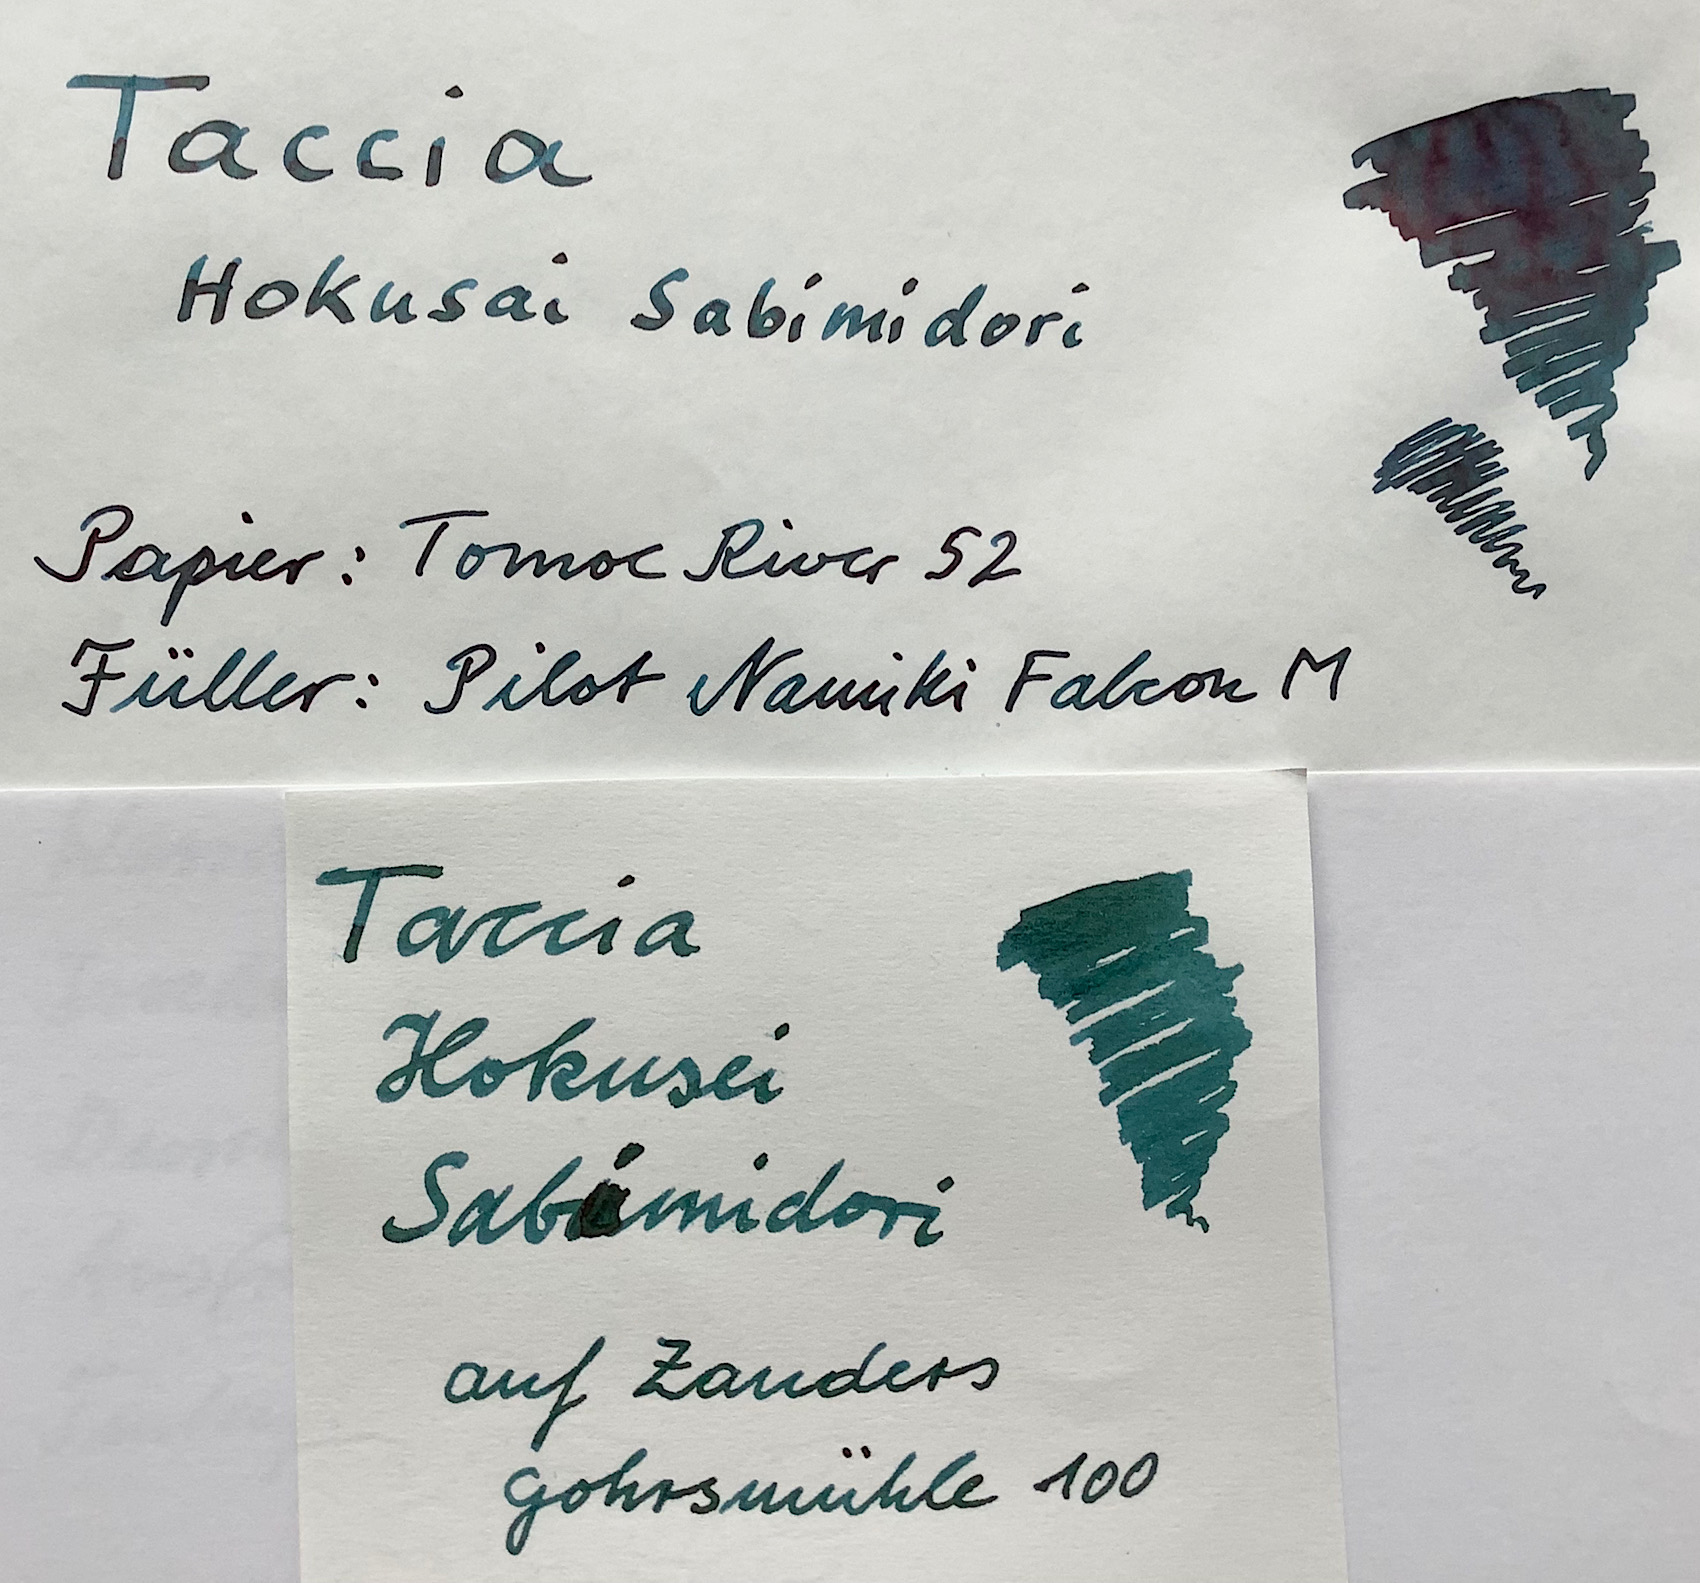 Taccia
Hokusai Sabimidori
Papier: Tomoe River 52
Füller: Pilot Namiki Falcon M
Taccia
Hokusei
Sabimidori
auf Zanders
gohrsmühle 100